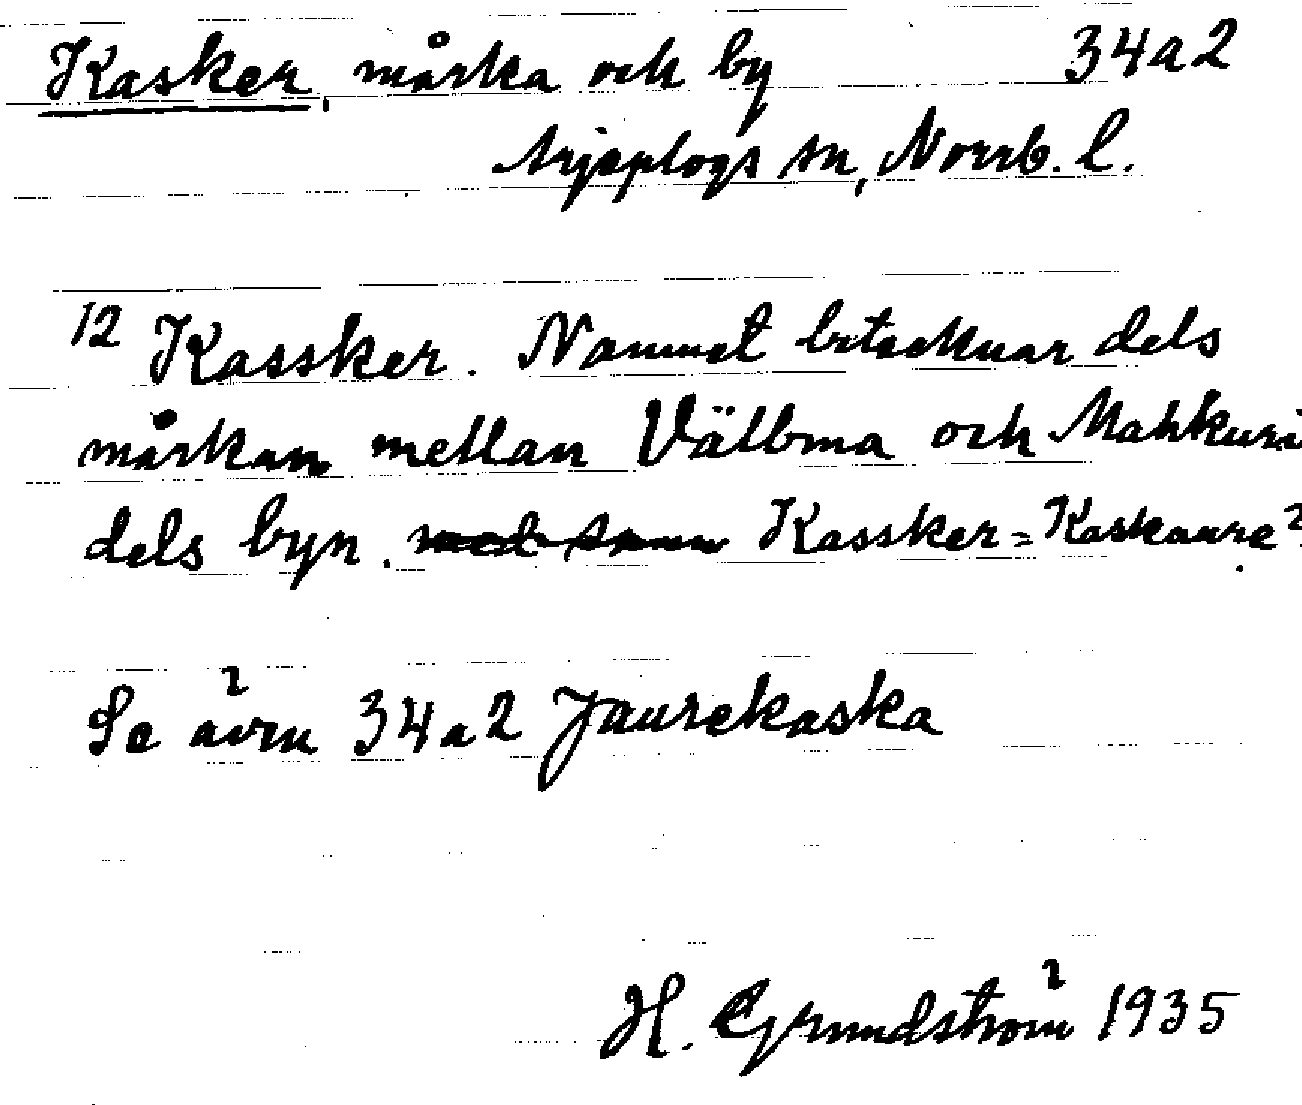 Kasker, mårka och by 34a2
Arjeplogs sn, Norrb. l.
12 Kassker. Namnet betecknar dels
mårkan mellan Välbma och Mahkuri
dels byn. Kassker = Kaskaure?
Se även 34a2 Jaurekaska
H. Grundström 1935